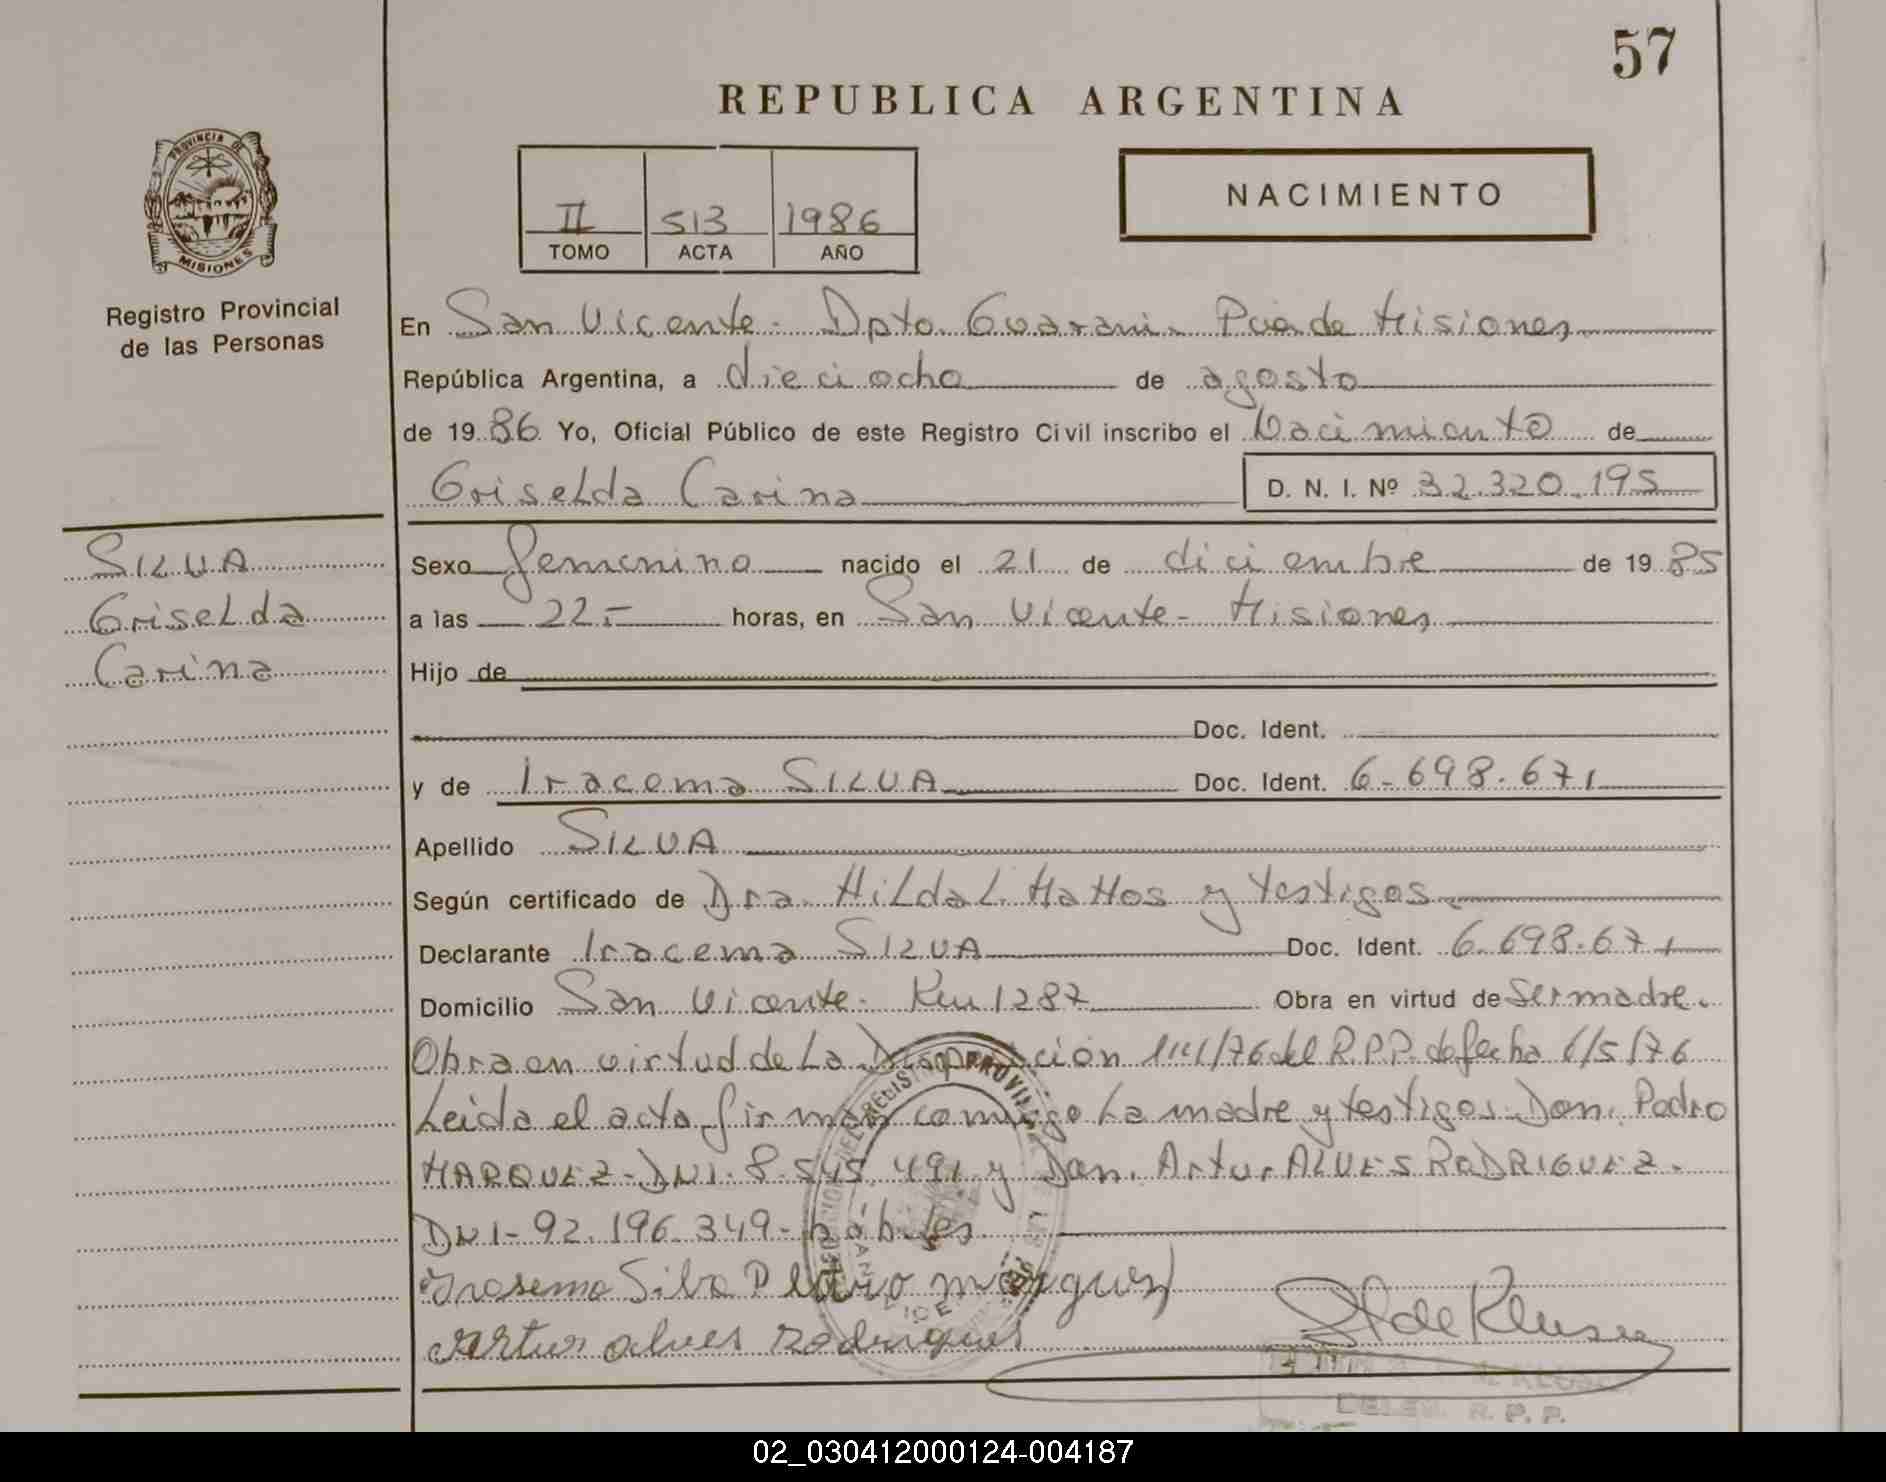 57
REPUBLICA ARGENTINA
PROVINCIA DE
MISIONES
Registro Provincial
de las Personas
II 513 1986
TOMO ACTA AÑO
NACIMIENTO
En San Vicente - Dpto. Guarani - Pcia de Misiones
República Argentina, a dieciocho de agosto
de 1986 Yo, Oficial Público de este Registro Civil inscribo el Nacimiento de
Griselda Carina D. N. I. Nº 32.320.195
SILVA
Griselda
Carina
Sexo femenino nacido el 21 de diciembre de 1985
a las 22.- horas, en San Vicente - Misiones
Hijo de
Doc. Ident.
y de Iracema SILVA Doc. Ident. 6.698.671
Apellido SILVA
Según certificado de Dra. Hilda L. Mattos y testigos.
Declarante Iracema SILVA Doc. Ident. 6.698.671
Domicilio San Vicente - Km 1287 Obra en virtud de ser madre.
Obra en virtud de La Disposición /76 del R.P.P. de fecha 6/5/76
Leida el acta firman conmigo La madre y testigos Don. Pedro
MARQUEZ - DNI. 8.545.491 y Don. Artur ALVES RODRIGUEZ.
DNI - 92.196.349 - hábiles.
Irasema Silva Pedro marques
Artur alves rodrigues
DELEG. R. P. P.
02_030412000124-004187